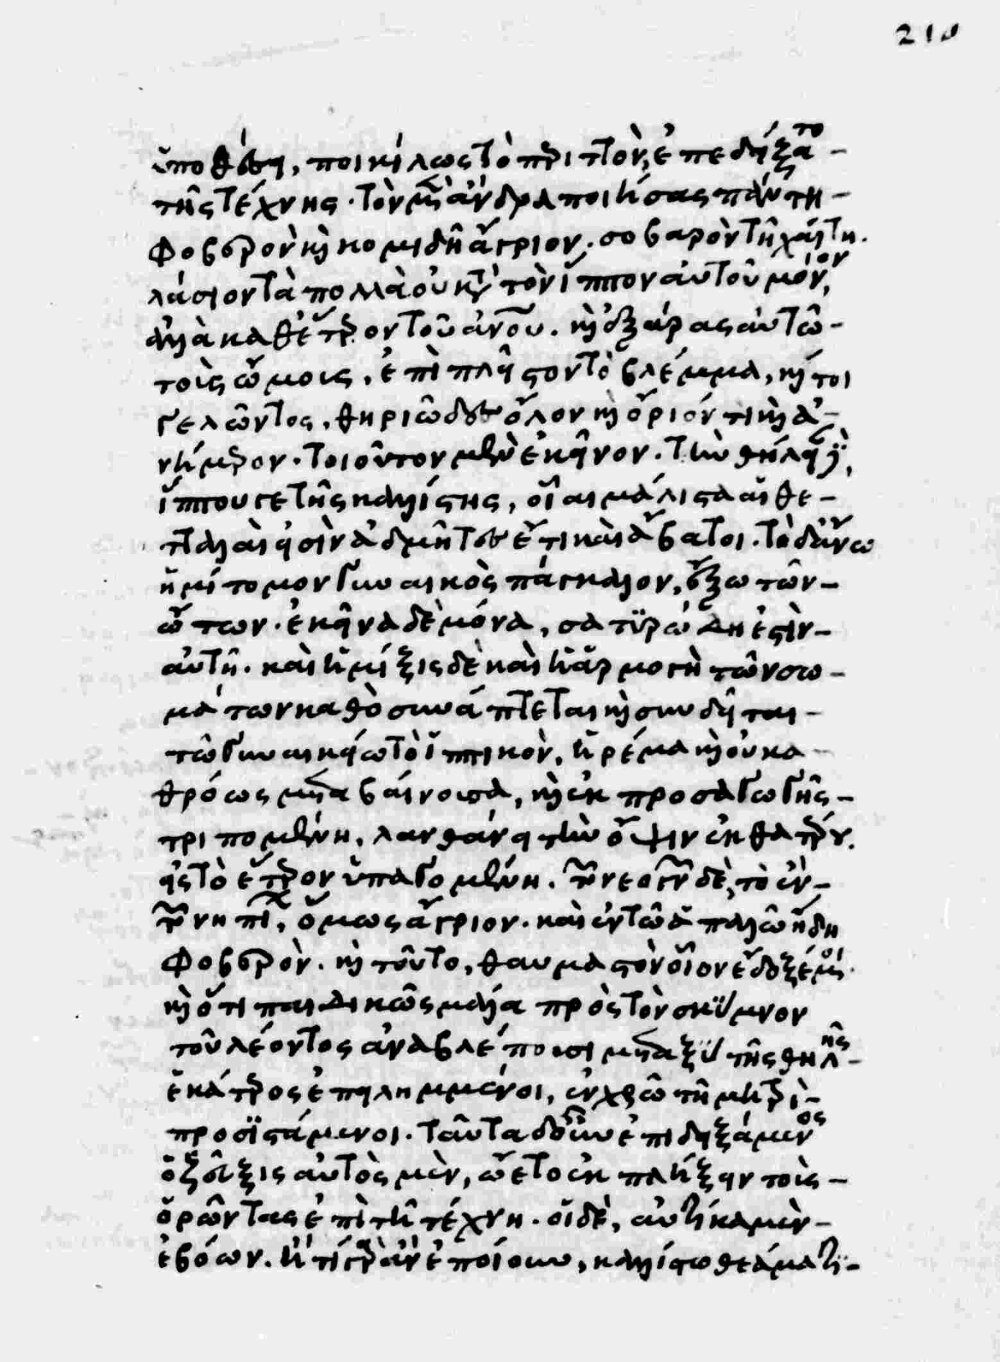 ὑποθέσει, ποικίλως τὸ περιττὸν, ἐπεδείξατο
τῆς τέχνης· τὸν μὲν ἄνδρα ποιήσας πάντη
φοβερὸν καὶ κομιδῆ ἄγριον. σοβαρὸν τῆ χαίτη.
λάσιον τὰ πολλὰ οὐ κατὰ τὸν ἵππον αὐτοῦ μόνον,
ἀλλὰ καθέτερον τοῦ ἀνου. καὶ ἐξάρας αὐτῶ
τοὺς ὤμους, ἐπὶ πλεῖστον τὸ βλέμμα, καίτοι
γελῶντος, θηριῶδες ὅλον καὶ ὄριόν τι καὶ ἀ-
νήμερον. τοιοῦτον μὲν ἐκεῖνον. τὴν θήλειαν δὲ,
ἵππου γε τῆς καλλίστης, οἷαι μάλιστα αἱ θε-
τταλαὶ εἰσὶν ἀδμῆτες ἔτι καὶ ἄβατοι. τὸ δ' ἄνω
ἡμίτομον γυναικὸς πάγκαλον, ἔξω τῶν
ὤτων. ἐκεῖνα δὲ μόνα, σατυρώδη ἐστὶν
αὐτῆ. καὶ ἡ μίξις δὲ καὶ ἡ ἁρμογὴ τῶν σω-
μάτων καθὸ συνάπτεται καὶ συνδεῖται
τῶ γυναικείω τὸ ἱππικὸν, ἠρέμα καὶ οὐκ ἀ-
θρόως μεταβαίνουσα, καὶ ἐκ προσαγωγῆς
τρεπομένη, λανθάνει τὴν ὄψιν ἐκ θατέρου
εἰς τὸ ἕτερον ὑπαγομένη. τὸ νεογνὸν δὲ, τὸ ἐν
τῶ νηπίω, ὅμως ἄγριον. καὶ ἐν τῶ ἁπαλῶ ἤδη
φοβερὸν. καὶ τοῦτο, θαυμαστὸν οἷον ἔδοξέ μοι.
καὶ ὅτι παιδικῶς μάλα πρὸς τὸν σκύμνον
τοῦ λέοντος ἀναβλέπουσι μεταξὺ τῆς θηλῆς
ἑκάτερος ἐπειλημμένοι, ἐν χρῶ τῆ μητρὶ
προσϊστάμενοι. ταῦτα δ' οὖν ἐπιδειξάμενος
ὁ ζεῦξις αὐτὸς μὲν, ὤετο ἐκπλήξειν τοὺς
ὁρῶντας ἐπὶ τῆ τέχνη. οἱ δὲ, αὐτίκα μὲν
ἐβόων. ἢ τί γὰρ ἂν ἐποίουν, καλλίστω θεάματι